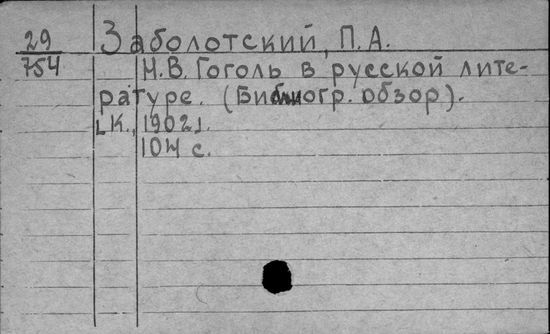 29
754
Заболотский, П.А.
Н.В. Гоголь в русской лите-
ратуре. (Библиогр. обзор).
[К., 1902].
104 с.